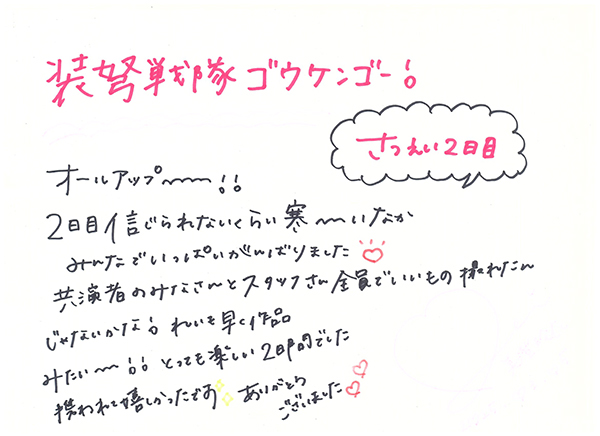 装弩戦隊ゴウケンゴー!
さつえい2日目
オールアップ〜〜!!
2日目信じられないくらい寒〜〜いなか
みんなでいっぱいがんばりました♡
共演者のみなさんとスタッフさん全員でいいもの撮れたん
じゃないかな! れいも早く作品
みたい〜!! とっても楽しい2日間でした
携われて嬉しかったです ありがとう
ございました♡